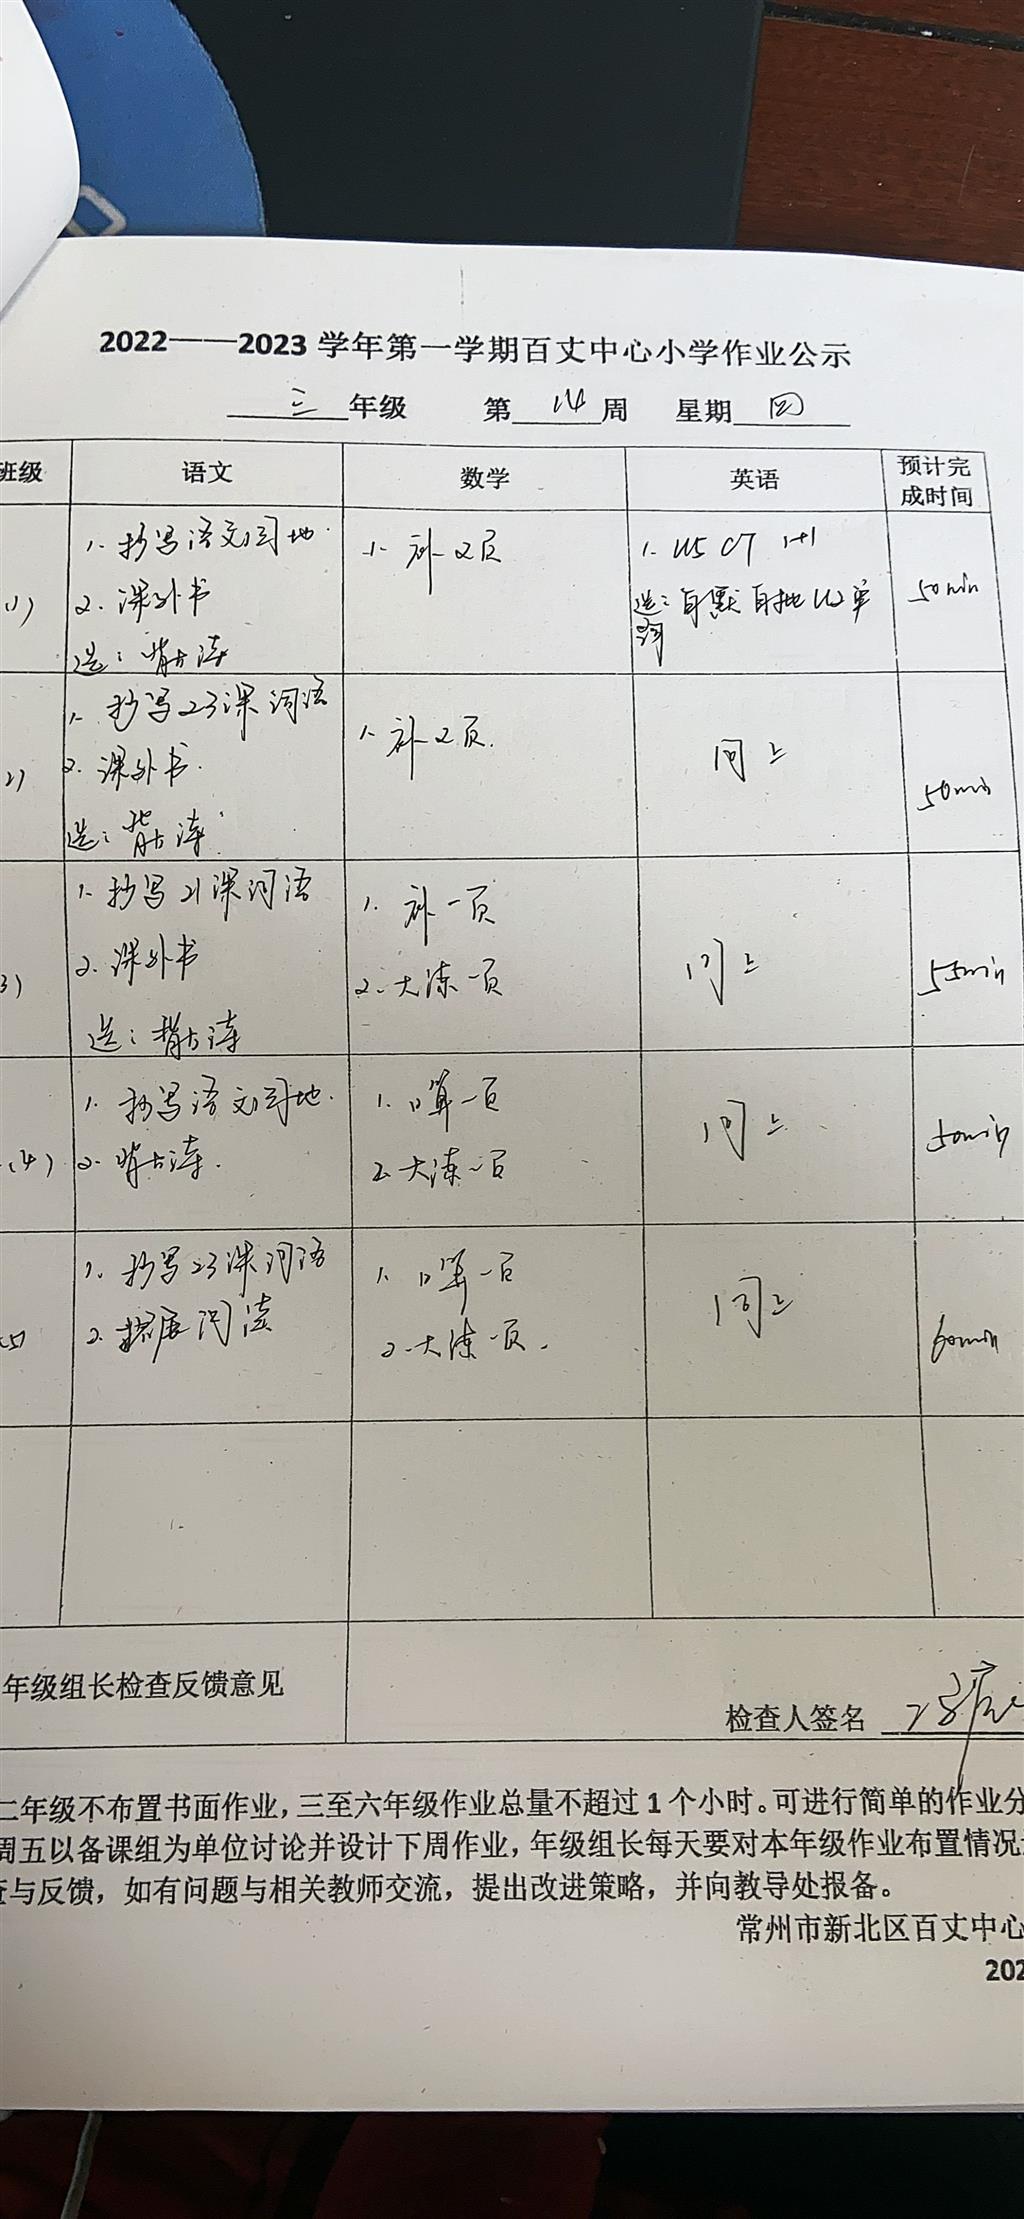 2022——2023 学年第一学期百丈中心小学作业公示
三 年级 第 14 周 星期 四
班级 语文 数学 英语 预计完成时间
(1)
1. 抄写语文园地.
2. 课外书
选: 背古诗
1. 补2页
1. U5 C7 1+1
选: 自默自批U2单词
50min
2)
1. 抄写23课词语
2. 课外书.
选: 背古诗.
1. 补2页.
同上
50min
3)
1. 抄写21课词语
2. 课外书
选: 背古诗
1. 补一页
2. 大练一页
同上
55min
(4)
1. 抄写语文园地.
2. 背古诗.
1. 口算一页
2. 大练一页
同上
50min
1. 抄写23课词语
2. 拓展阅读
1. 口算一页
2. 大练一页.
同上
60min
年级组长检查反馈意见
检查人签名
二年级不布置书面作业，三至六年级作业总量不超过 1 个小时。可进行简单的作业分
周五以备课组为单位讨论并设计下周作业，年级组长每天要对本年级作业布置情况
查与反馈，如有问题与相关教师交流，提出改进策略，并向教导处报备。
常州市新北区百丈中心
202